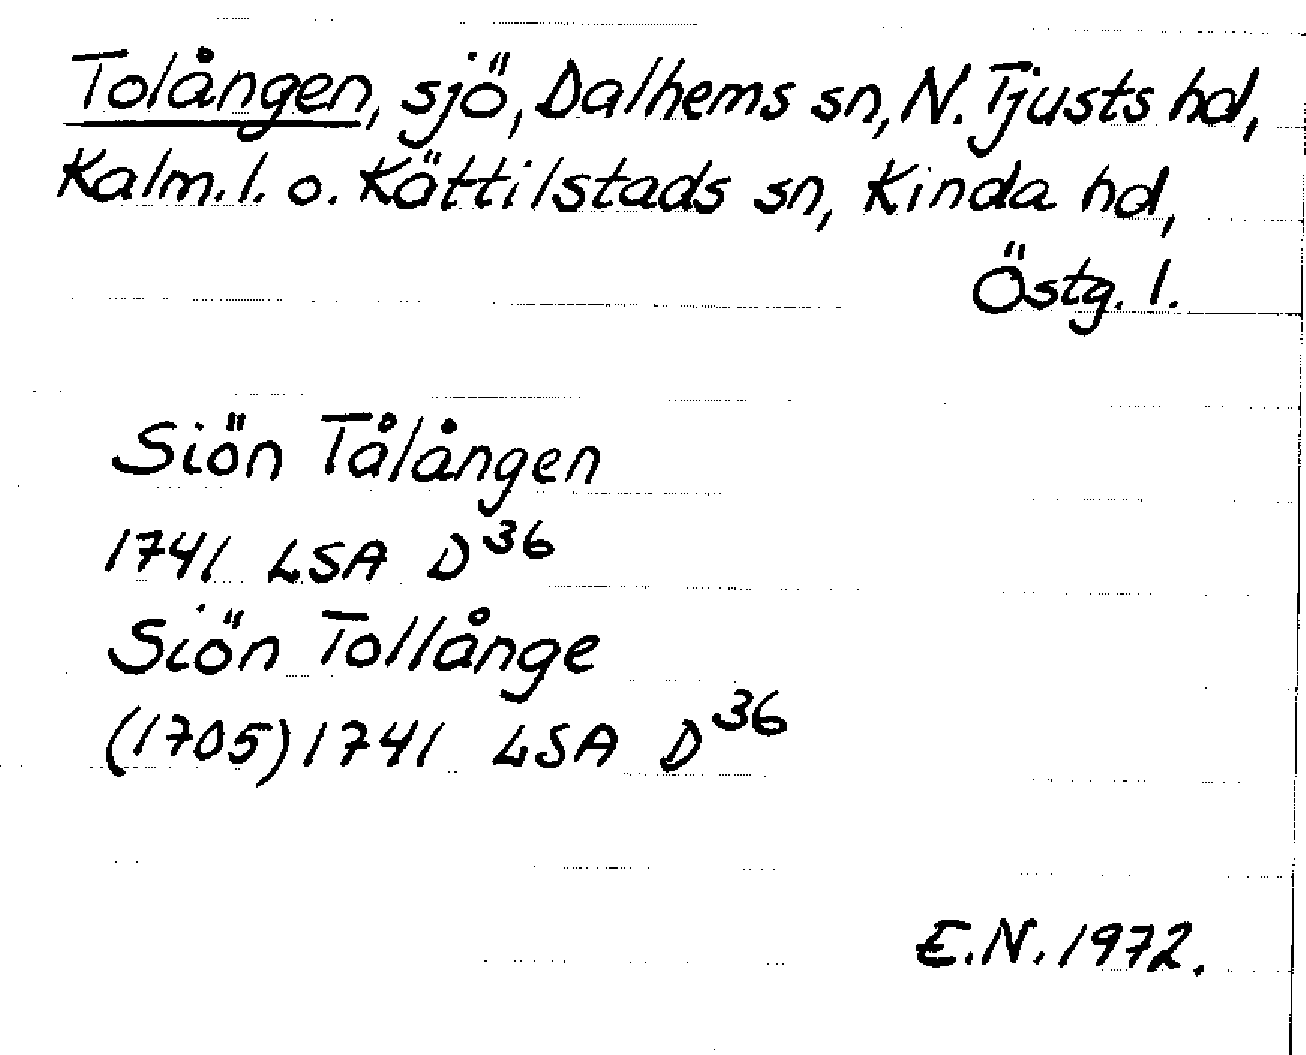 Tolången, sjö, Dalhems sn, N. Tjusts hd,
Kalm. l. o. Kättilstads sn, Kinda hd,
Östg. l.
Siön Tålången
1741 LSA D36
Siön Tollånge
(1705) 1741 LSA D36
E.N. 1972.